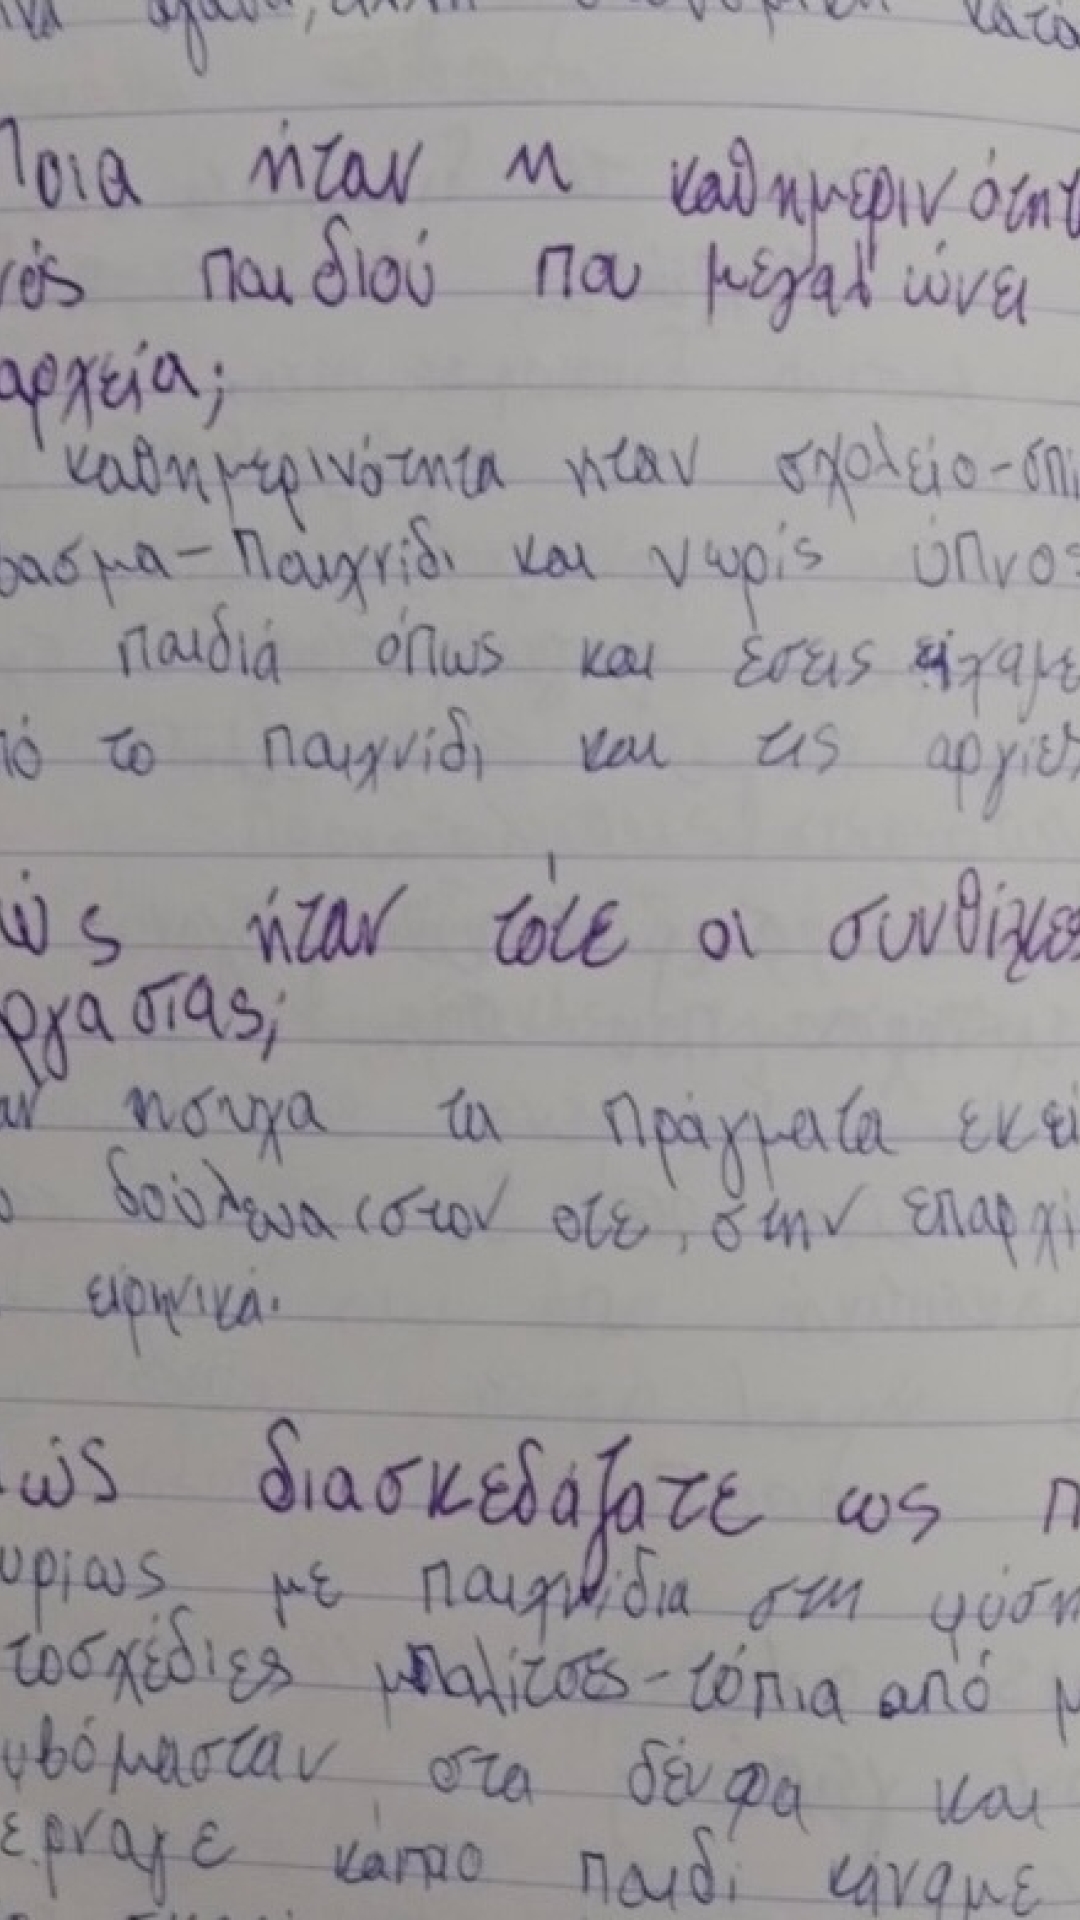 αγαθά,
Ποια ήταν η καθημερινότητ
νός παιδιού που μεγαλώνει
αρχεία;
καθημερινότητα ηταν σχολείο-σπι
βασμα-Παιχνίδι και νωρίς ύπνος
παιδιά όπως και έσεις είχαμε
πό το παιχνίδι και τις αργίες
ώς ήταν τότε οι συνθίκες
ργασίας;
αν ησυχα τα πράγματα εκεί
δούλευα (στον οτε, στην επαρχί
ειρηνικά.
ώς διασκεδάζατε ως π
υρίως με παιχνίδια στη φύση
τοσχέδιες μπαλίτσες-τόπια από μ
υβόμασταν στα δένρα και
ερναγε κάποιο παιδί κάναμε